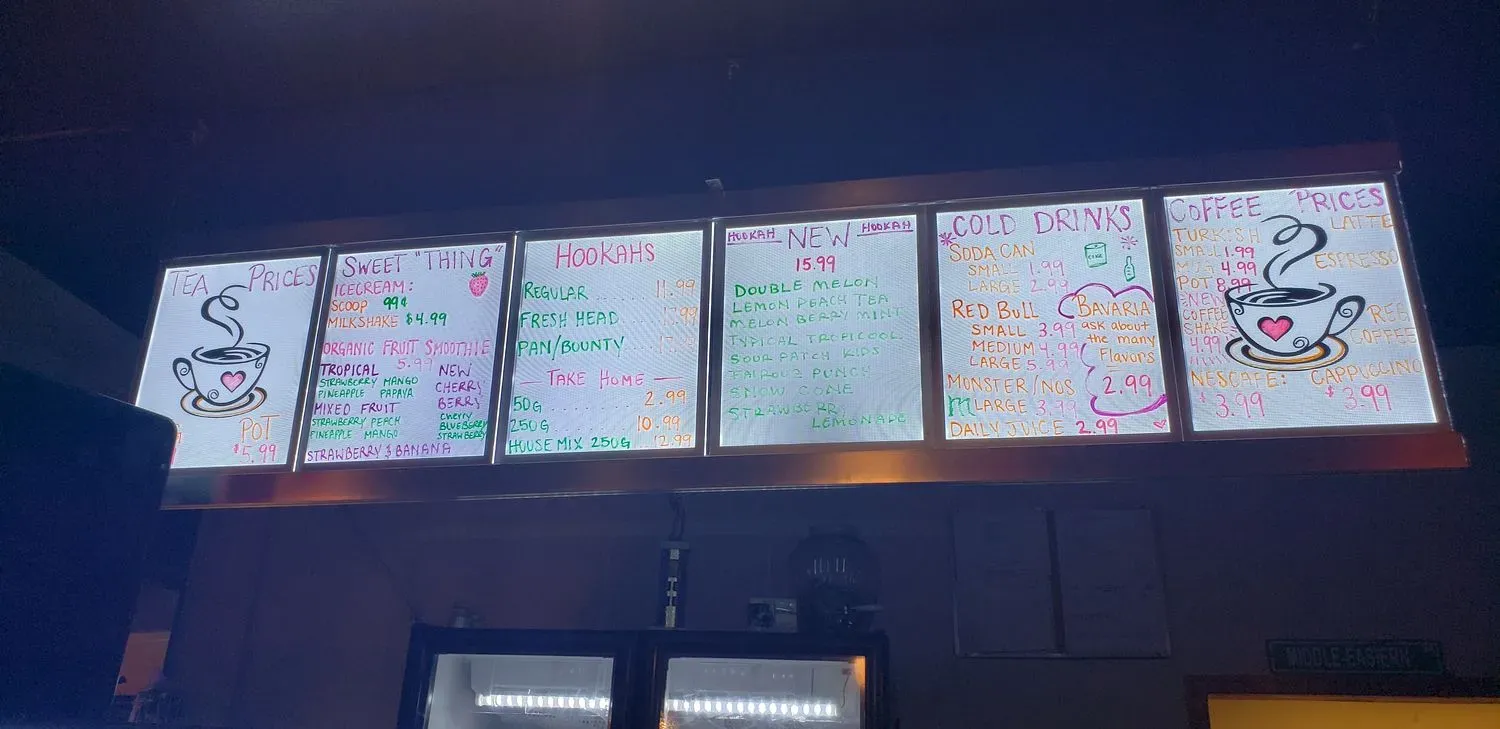 TEA PRICES
POT
$5.99
SWEET "THING"
ICECREAM:
SCOOP 99¢
MILKSHAKE $4.99
ORGANIC FRUIT SMOOTHIE
5.99
TROPICAL
STRAWBERRY MANGO
PINEAPPLE PAPAYA
MIXED FRUIT
STRAWBERRY PEACH
PINEAPPLE MANGO
STRAWBERRY & BANANA
NEW
CHERRY
BERRY
Cherry
BLUEBERRY
STRAWBERRY
HOOKAHS
REGULAR ........ 11.99
FRESH HEAD
PAN/BOUNTY
TAKE HOME
50G ........ 2.99
250G ........ 10.99
HOUSE MIX 250G 12.99
HOOKAH NEW HOOKAH
15.99
DOUBLE MELON
LEMON PEACH TEA
MELON BERRY MINT
TYPICAL TROPICOOL
SOUR PATCH KIDS
FAIROUZ PUNCH
SNOW CONE
STRAWBERRY
LEMONADE
COLD DRINKS
SODA CAN
SMALL 1.99
LARGE 2.99
RED BULL
SMALL 3.99
MEDIUM 4.99
LARGE 5.99
MONSTER/NOS
LARGE 3.99
DAILY JUICE 2.99
BAVARIA
ask about
the many
Flavors
2.99
COFFEE PRICES
TURKISH
SMALL 1.99
4.99
POT 8.99
NEW
COFFEE
SHAKE
4.99
LATTE
ESPRESSO
COFFEE
NESCAFE:
$3.99
CAPPUCCINO
$3.99
MIDDLE-EASTERN